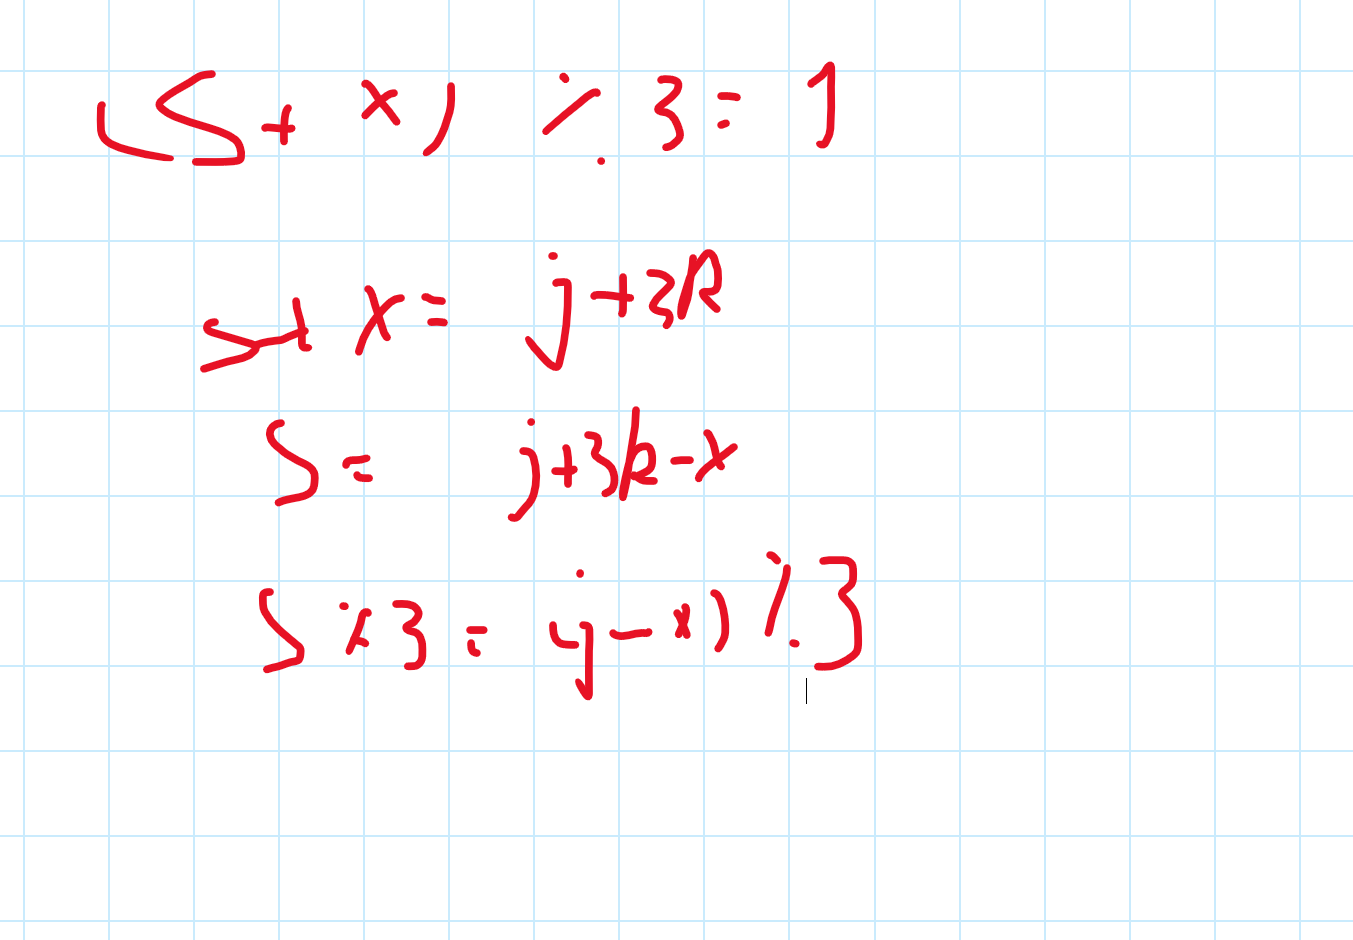 (S + x) % 3 = 1
S + x = j + 3k
S = j + 3k - x
S % 3 = (j - x) % 3